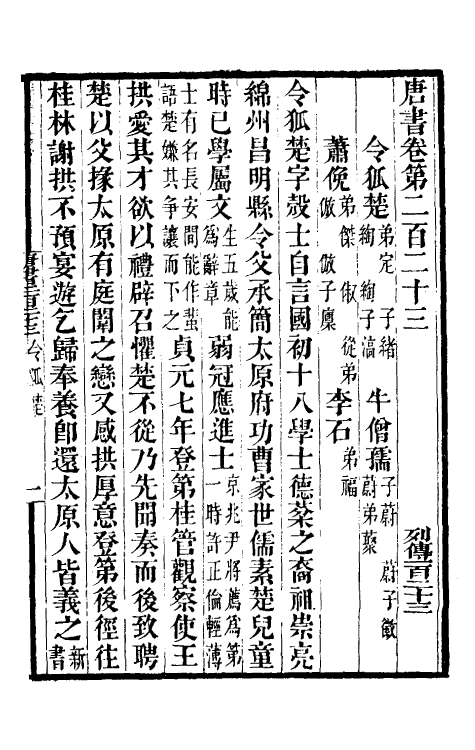 唐書卷第二百二十三 列傳一百二十三
令狐楚 弟定 子緒 綯 綯子滈 牛僧孺 子蔚 蔚子徽 蔚弟藂
蕭俛 弟傑 俶 從弟倣 倣子廩 李石 弟福
令狐楚字殼士自言國初十八學士德棻之裔祖崇亮
綿州昌明縣令父承簡太原府功曹家世儒素楚兒童
時已學屬文生五歲能爲辭章弱冠應進士京兆尹將薦爲第一時許正倫輕薄
士有名長安間能作蜚語楚嫌其争讓而下之貞元七年登第桂管觀察使王
拱愛其才欲以禮辟召懼楚不從乃先聞奏而後致聘
楚以父掾太原有庭闈之戀又感拱厚意登第後徑往
桂林謝拱不預宴遊乞歸奉養卽還太原人皆義之新書
令狐楚 一